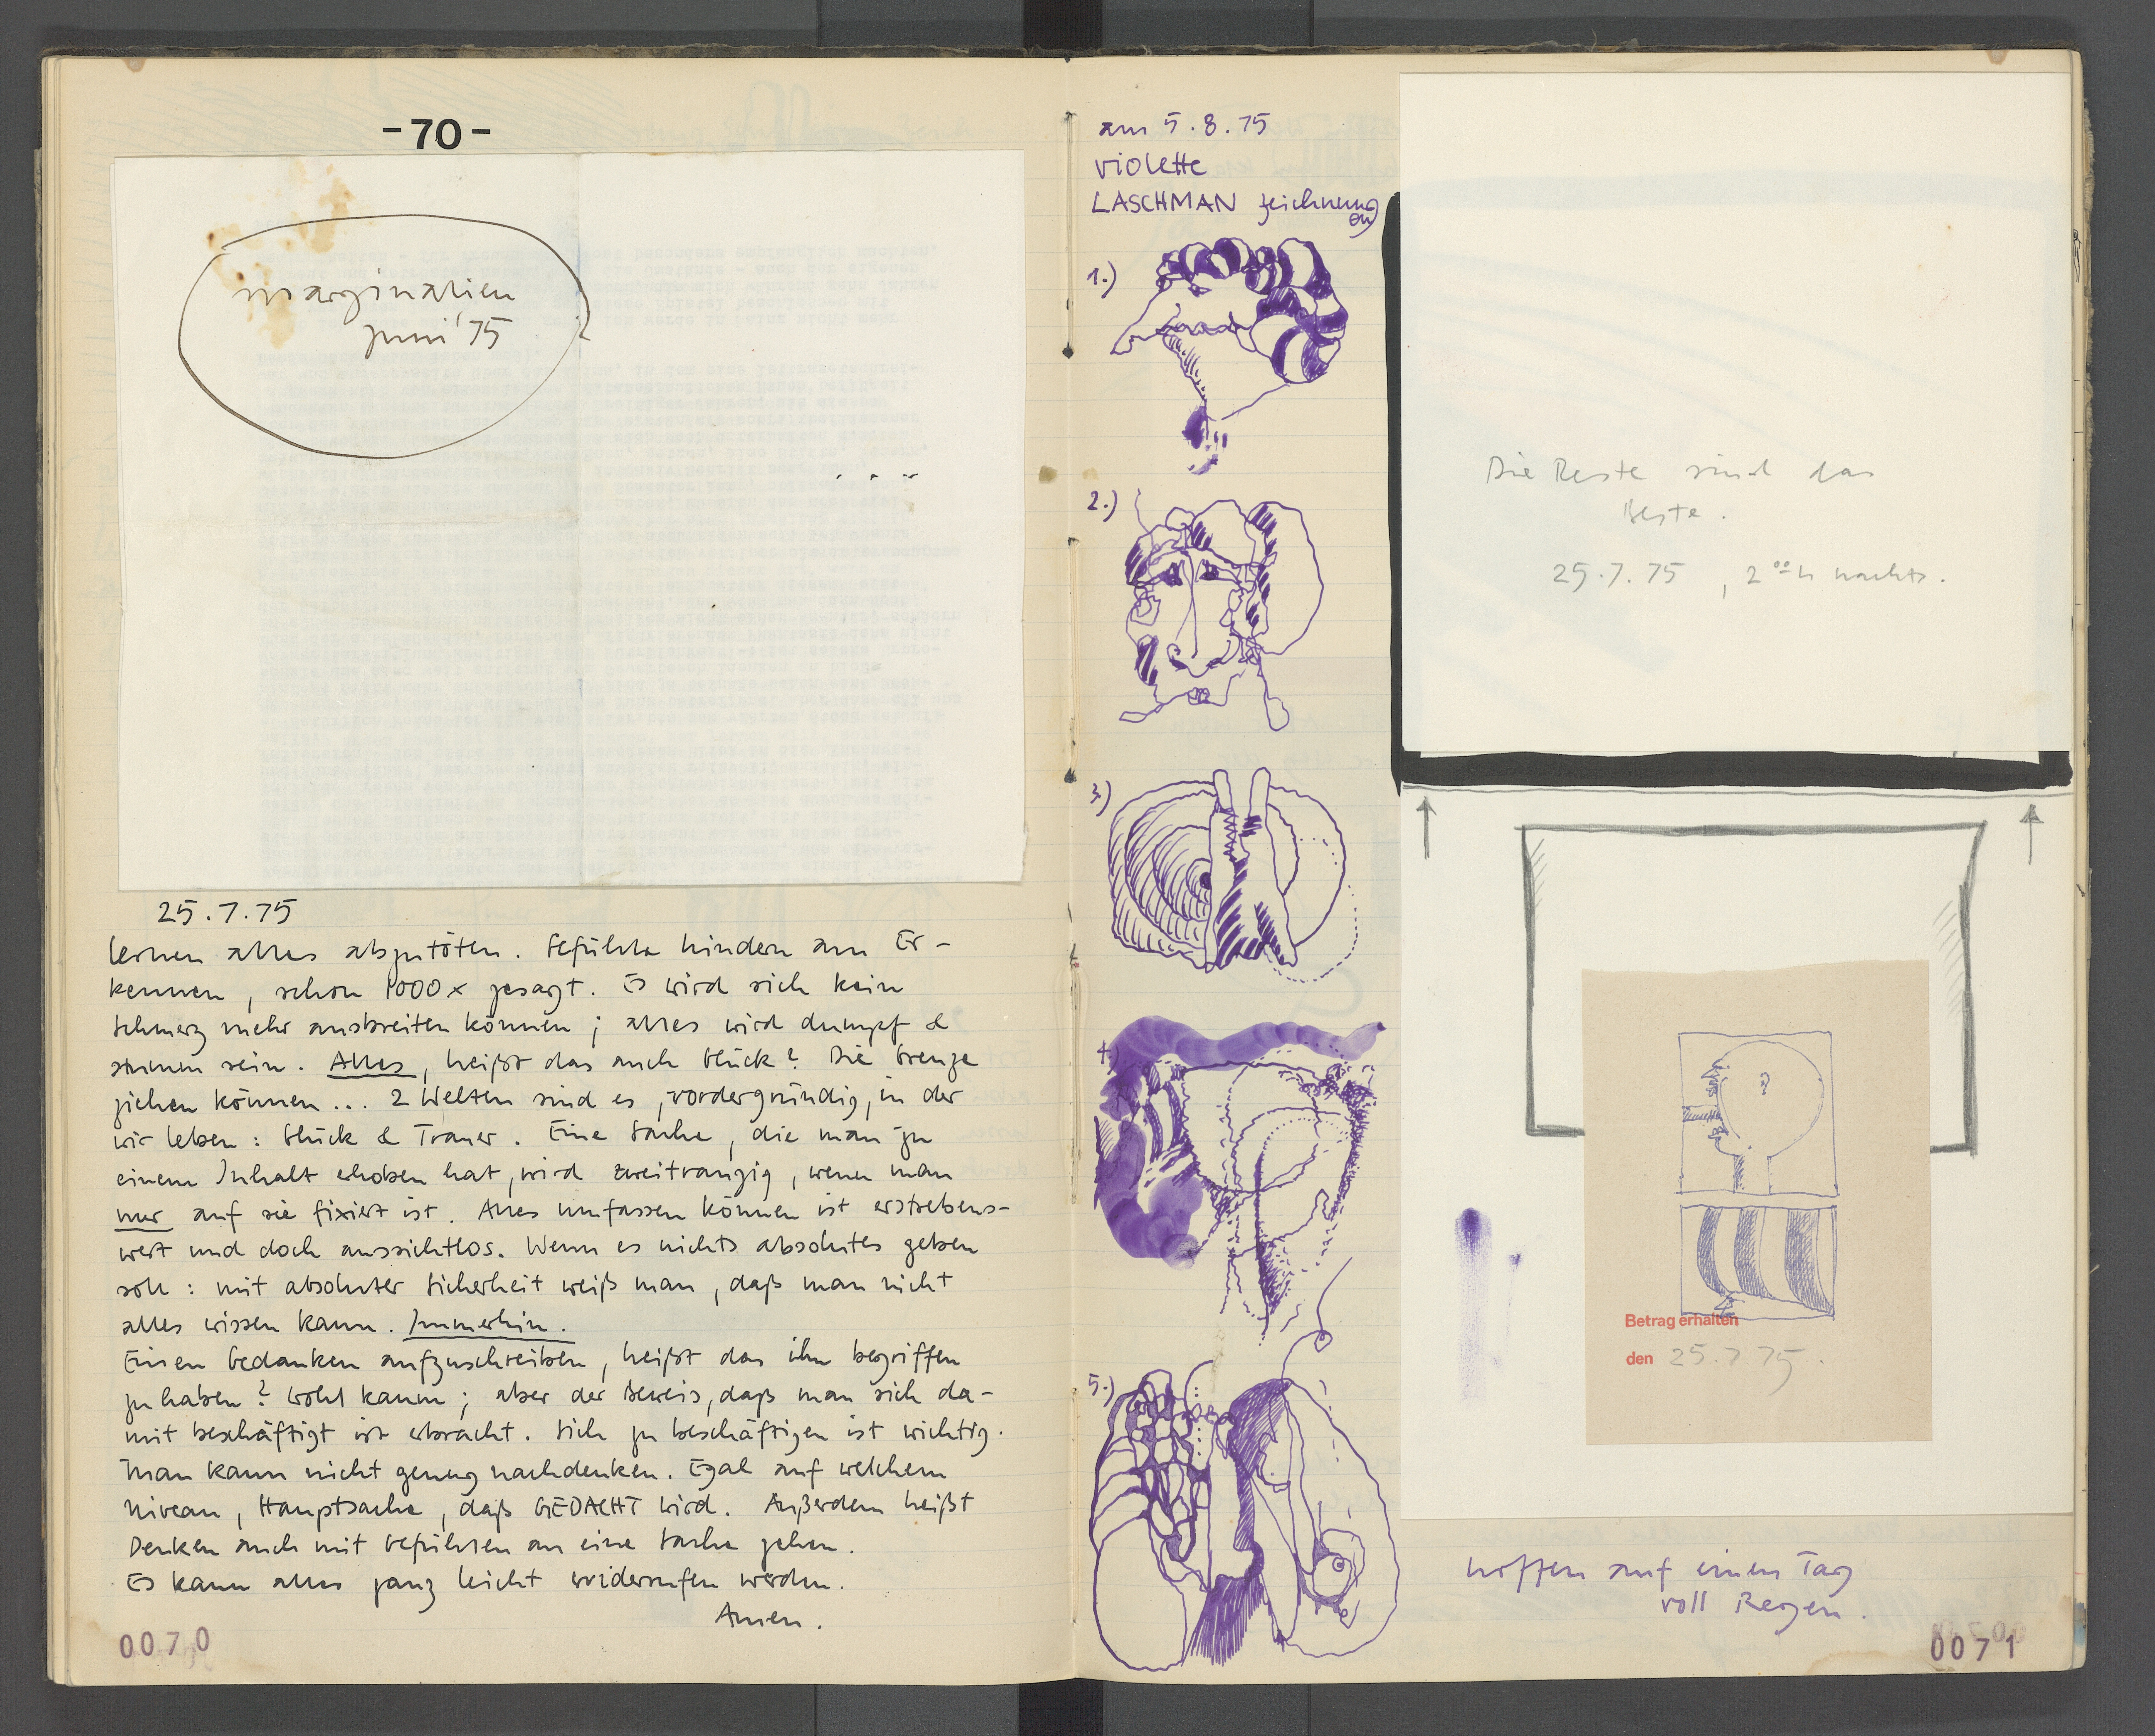 -70-
marginalien
juni '75
25.7.75
lernen alles abzutöten. Gefühle hindern am Er-
kennen, schon 1000x gesagt. Es wird sich kein
Schmerz mehr ausbreiten können; alles wird dumpf &
stumm sein. Alles, heißt das auch Glück? Die Grenze
ziehen können... 2 Welten sind es, vordergründig, in der
wir leben: Glück & Trauer. Eine Sache, die man zu
einem Inhalt erhoben hat, wird zweitrangig, wenn man
nur auf sie fixiert ist. Alles umfassen können ist erstrebens-
wert und doch aussichtlos. Wenn es nichts absolutes geben
soll: mit absoluter Sicherheit weiß man, daß man nicht
alles wissen kann. Immerhin.
Einen Gedanken aufzuschreiben, heißt das ihn begriffen
zu haben? Wohl kaum; aber der Beweis, daß man sich da-
mit beschäftigt ist erbracht. Sich zu beschäftigen ist wichtig.
Man kann nicht genug nachdenken. Egal auf welchem
Niveau, Hauptsache, daß GEDACHT wird. Außerdem heißt
Denken auch mit Gefühlen an eine Sache gehen.
Es kann alles ganz leicht widerrufen werden.
Amen.
0070
am 5.8.75
violette
LASCHMAN zeichnung
en
1.)
2.)
3.)
4.)
5.)
Die Reste sind das
Beste.
25.7.75, 2ºº h nachts.
Betrag erhalten
den 25.7.75.
hoffen auf einen Tag
voll Regen.
0071